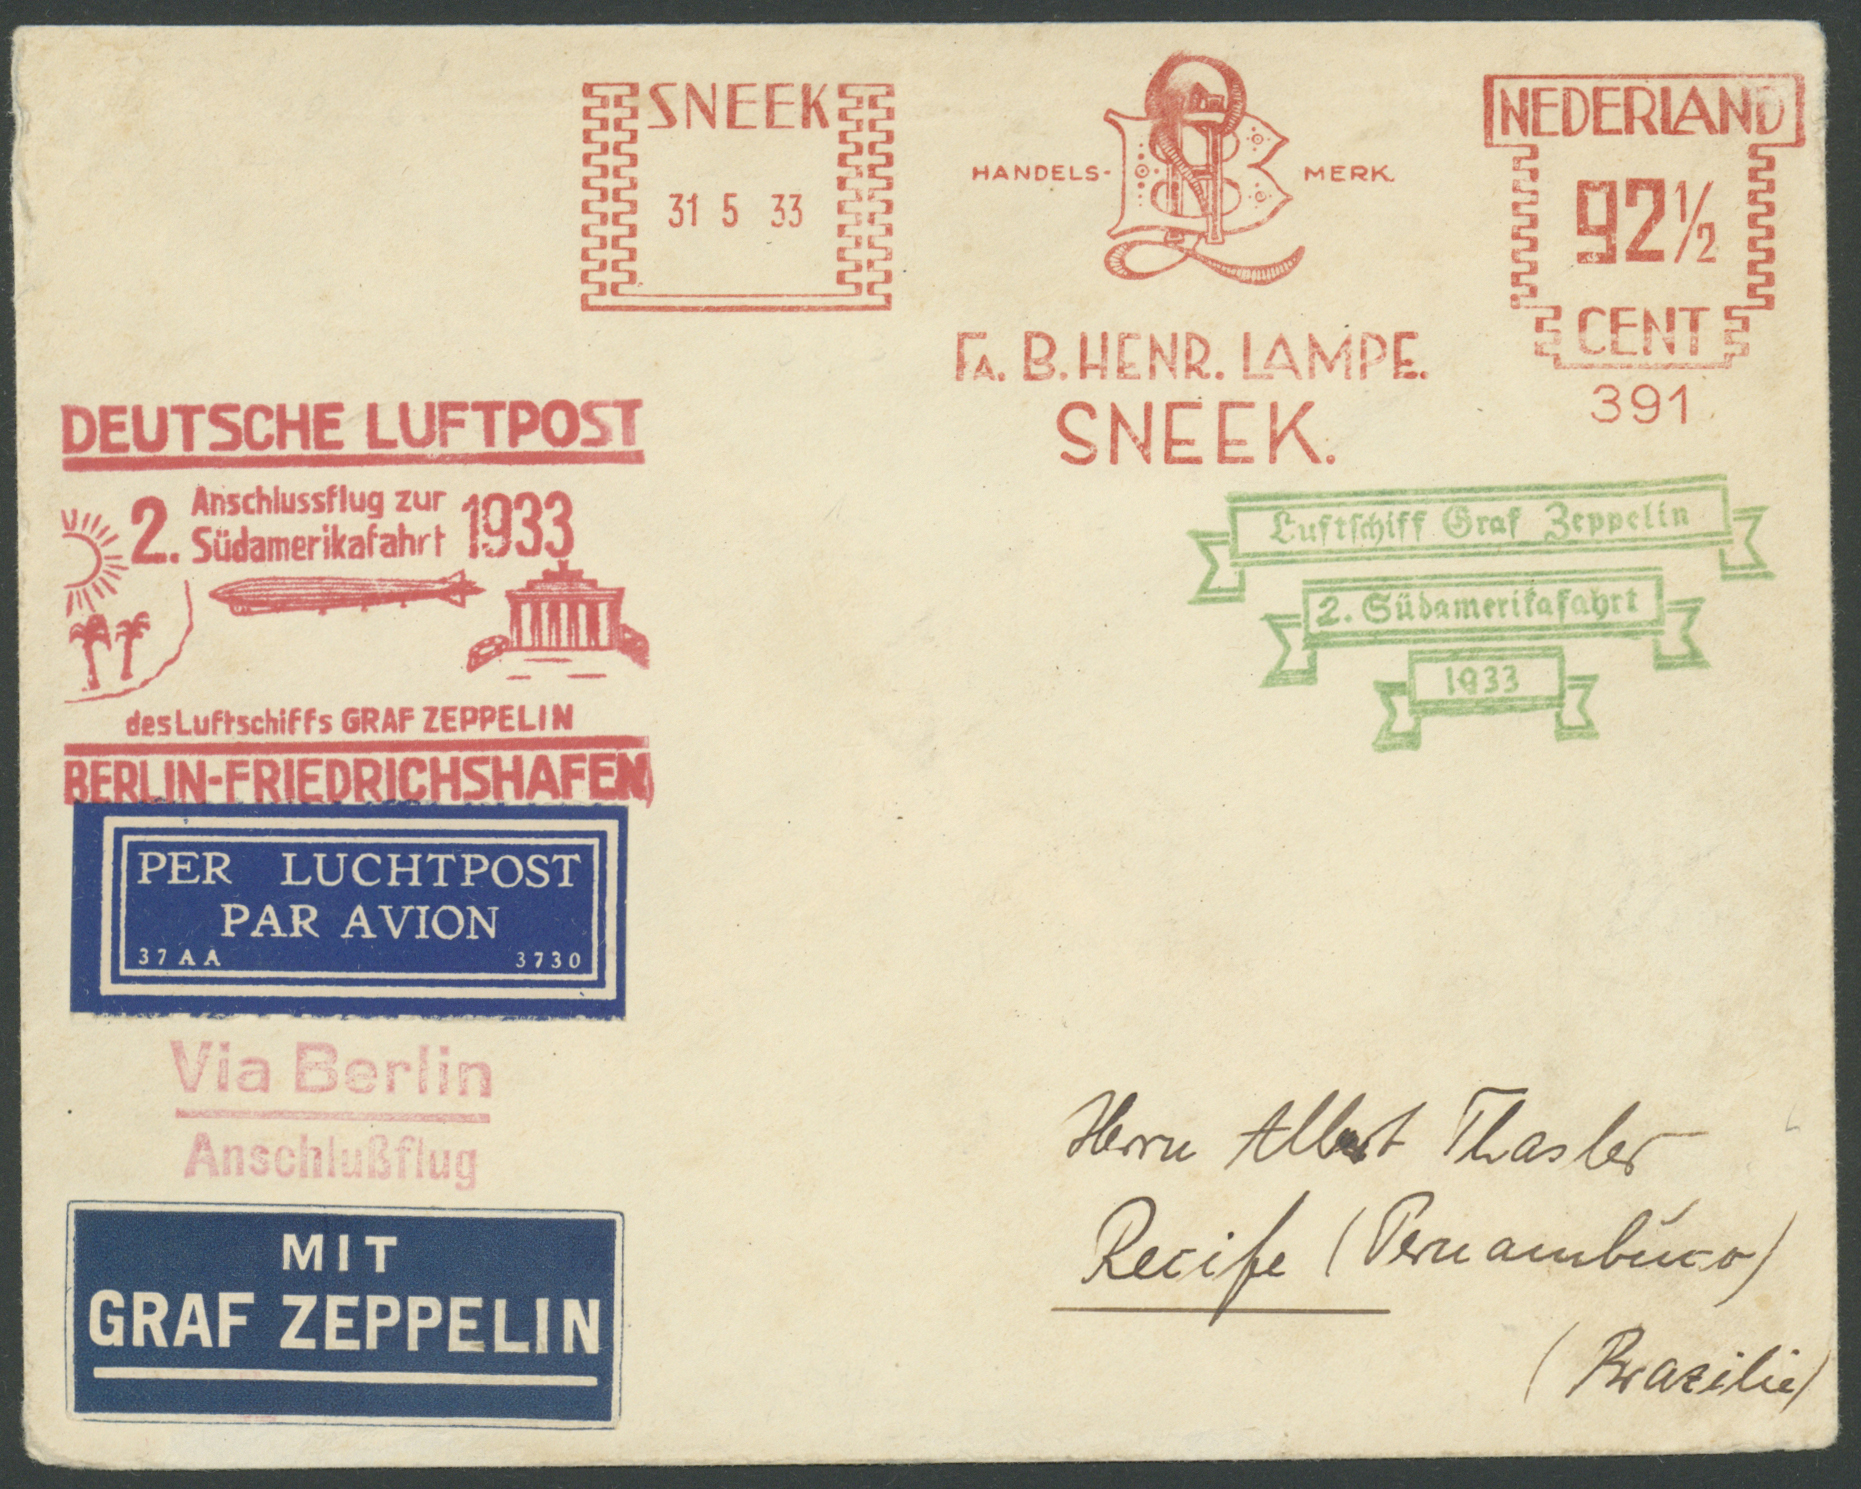 SNEEK
31 5 33
HANDELS- MERK.
NEDERLAND
92½
CENT
391
FA. B. HENR. LAMPE.
SNEEK.
DEUTSCHE LUFTPOST
2. Anschlussflug zur
Südamerikafahrt 1933
des Luftschiffs GRAF ZEPPELIN
BERLIN-FRIEDRICHSHAFEN
Luftschiff Graf Zeppelin
2. Südamerikafahrt
1933
PER LUCHTPOST
PAR AVION
37 A A 3730
Via Berlin
Anschlußflug
MIT
GRAF ZEPPELIN
Herrn Albert Thasler
Recife (Pernambúco)
(Brazilie)